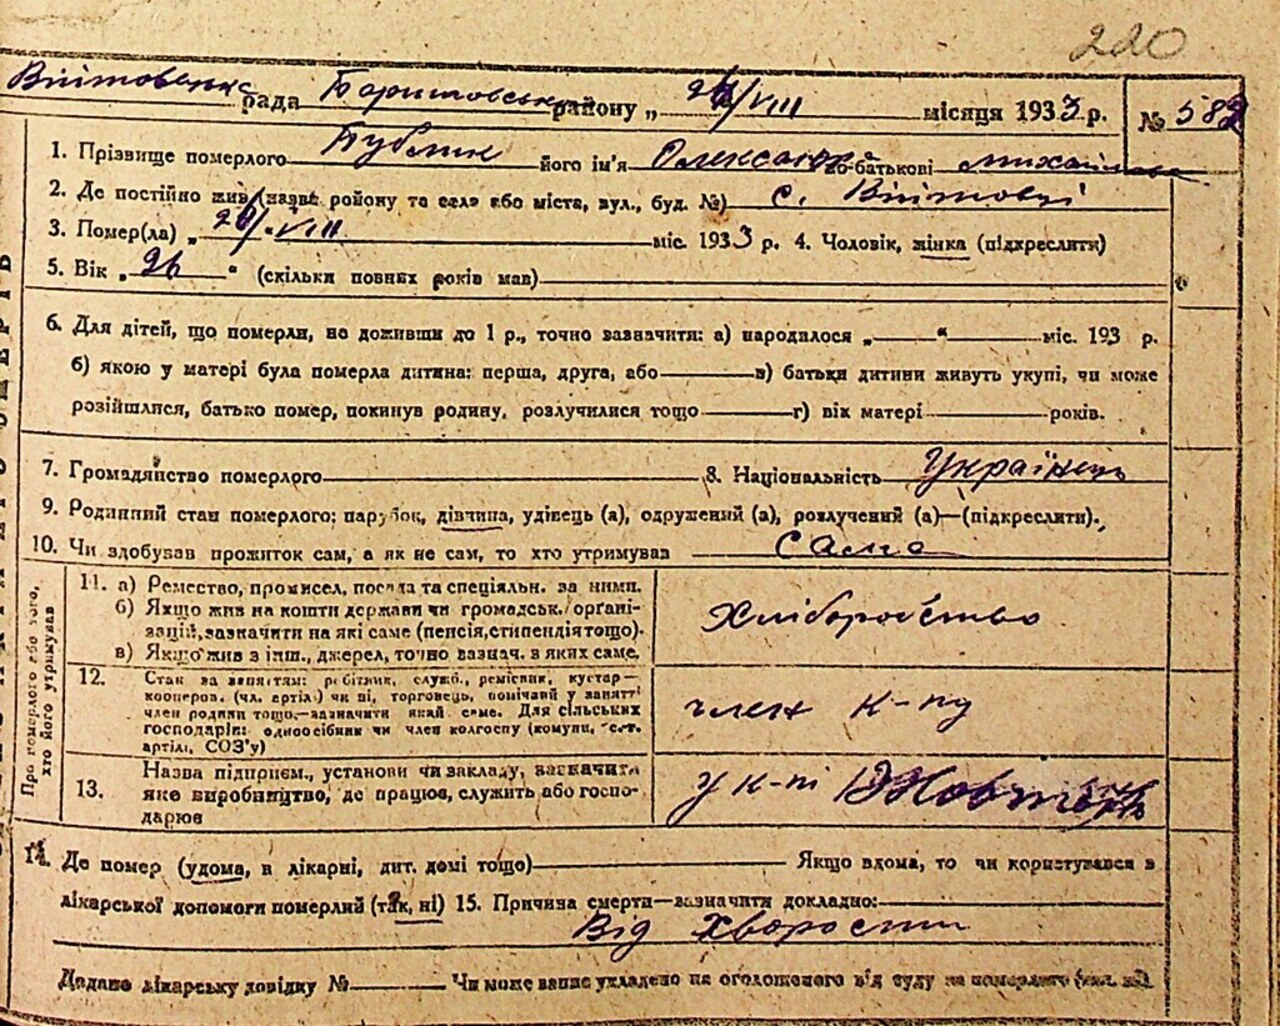 220
Війтовецка рада Баришовськ району „ 24/VIII місяця 1933 р. № 582
1. Прізвище померлого Бублик його ім'я Олександра по-батькові Михайлова
2. Де постійно жив (назва району та села або міста, вул., буд. №) с. Війтовці
3. Помер(ла) „ 24/VIII міс. 1933 р. 4. Чоловік, жінка (підкреслити)
5. Вік „ 26 “ (скільки повних років мав)
6. Для дітей, що померли, не доживши до 1 р., точно зазначити: а) народилося „ “ міс. 193 р.
б) якою у матері була померла дитина: перша, друга, або в) батьки дитини живуть укупі, чи може
розійшлися, батько помер, покинув родину, розлучилися тощо г) вік матері років.
7. Громадянство померлого 8. Національність Українець
9. Родинний стан померлого: парубок, дівчина, удівець (а), одружений (а), розлучений (а)—(підкреслити).
10. Чи здобував прожиток сам, а як не сам, то хто утримував сама
Про померлого або того,
хто його утримував
11. а) Ремество, промисел, посада та спеціяльн. за ними.
б) Якщо жив на кошти держави чи громадськ. орґані-
зацій, зазначити на які саме (пенсія, стипендія тощо).
в) Якщо жив з інш., джерел, точно вазнач. в яких саме.
Хліборобство
12. Стан за заняттям: робітник, служб., ремісник, кустар—
кооперов. (чл. артіл) чи ні, торговець, помічний у занятті
член родини тощо,—зазначити який саме. Для сільських
господарів: одноосібник чи член колгоспу (комуни, с.-г.
артілі, СОЗ'у)
член к-пу
13. Назва підприєм., установи чи закладу, зазначити
яке виробництво, де працює, служить або госпо-
дарює
у к-пі Жовтень
14. Де помер (удома, в лікарні, дит. домі тощо) Якщо вдома, то чи користувався в
лікарської допомоги померлий (так, ні) 15. Причина смерти—зазначити докладно:
Від хворости
Додано лікарську довідку № Чи може запис укладено на оголошеного від суду за померлого